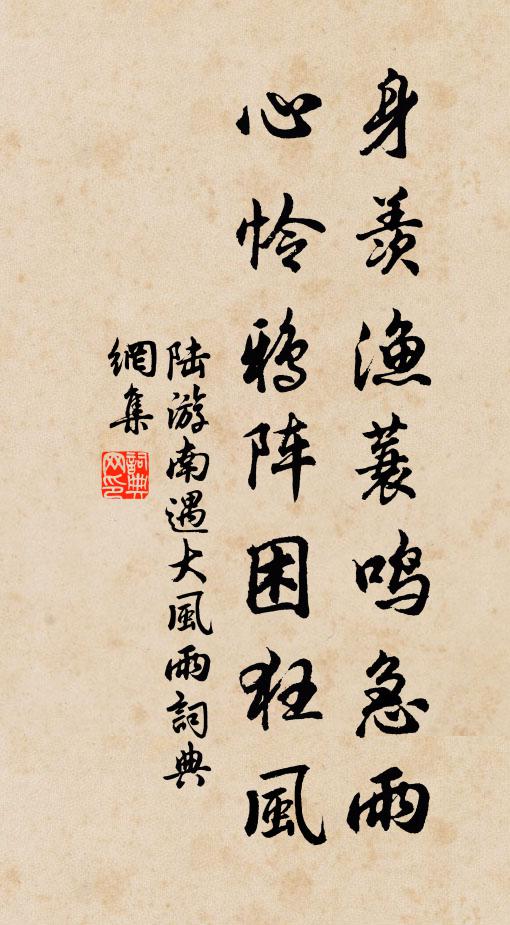 身羡渔蓑鸣急雨
心怜鸦阵困狂風
陆游南遇大風雨詞典
網集
詞典
网印